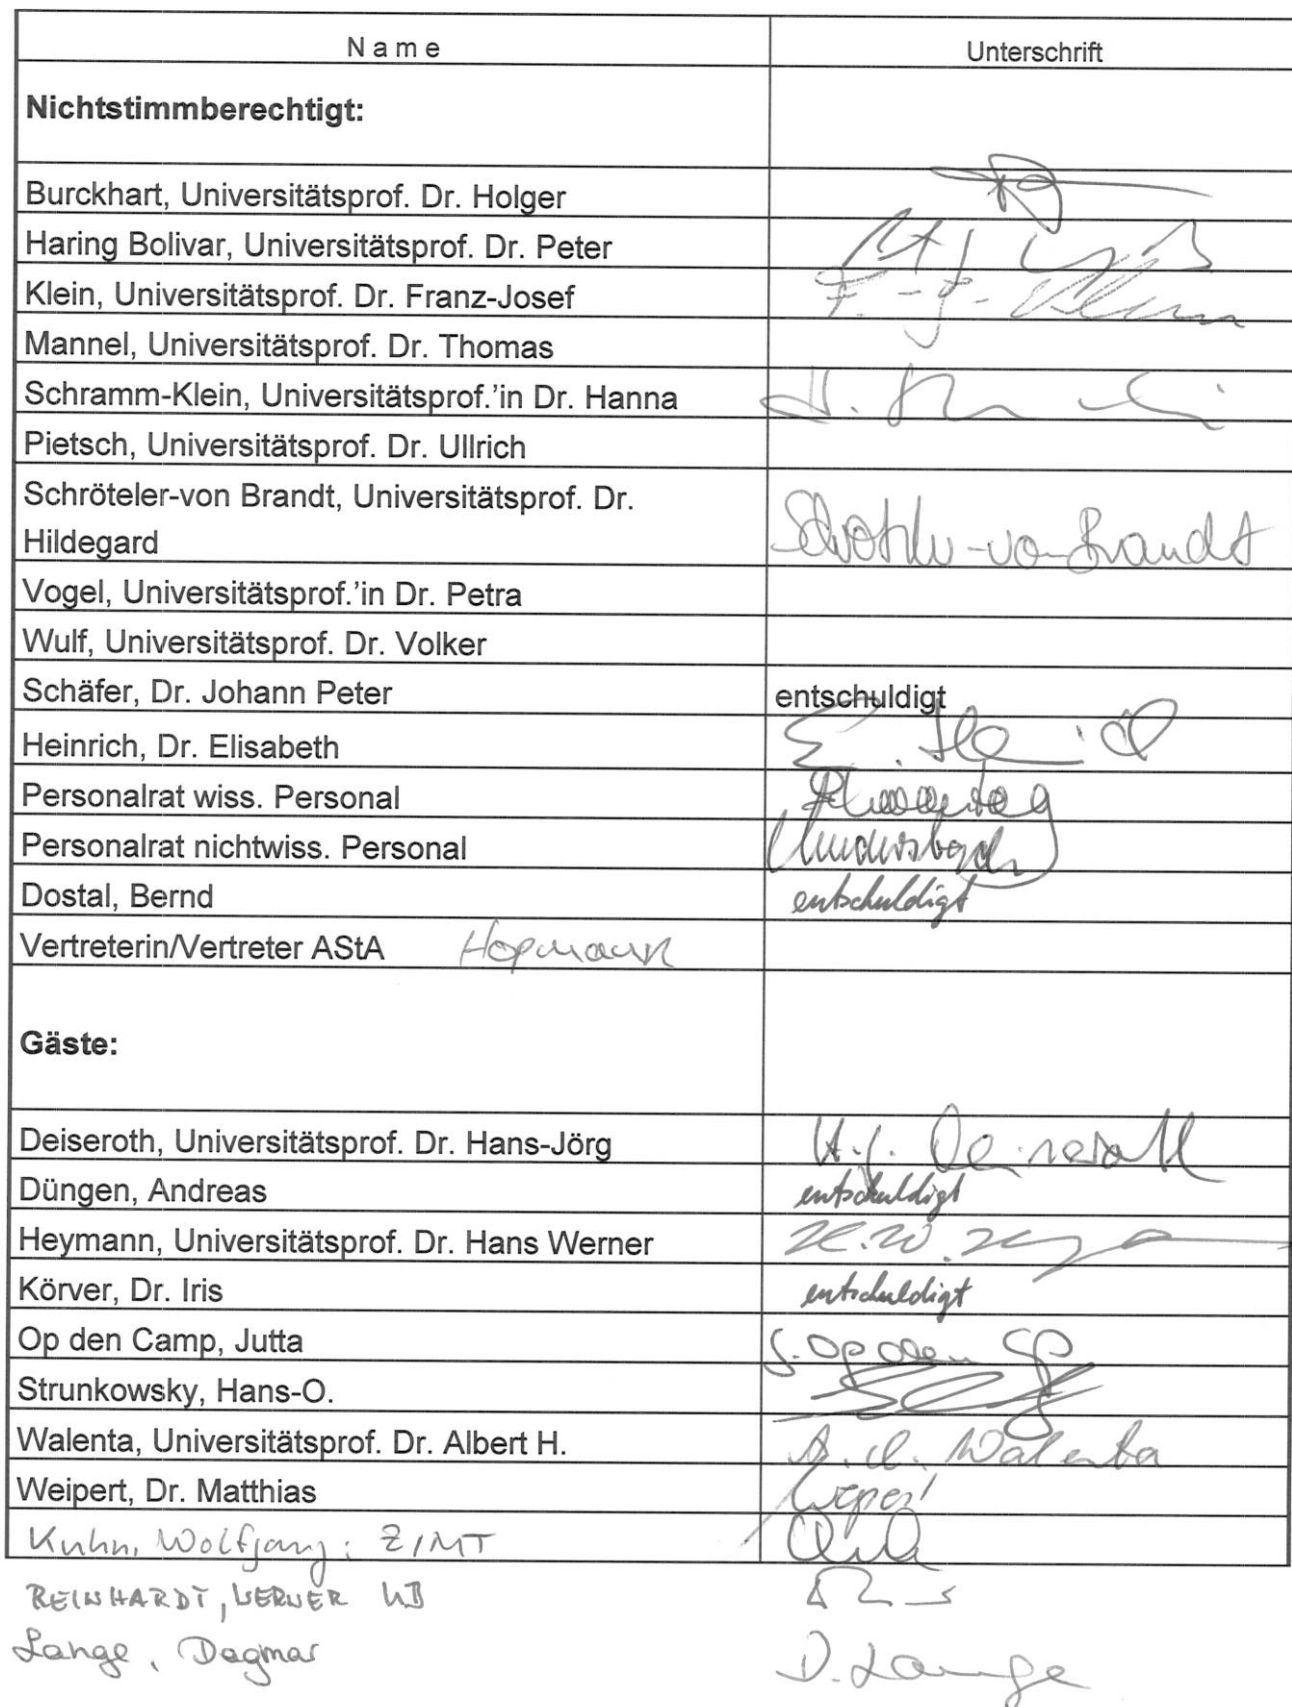 Name Unterschrift
Nichtstimmberechtigt:
Burckhart, Universitätsprof. Dr. Holger
Haring Bolivar, Universitätsprof. Dr. Peter
Klein, Universitätsprof. Dr. Franz-Josef F.-J. Klein
Mannel, Universitätsprof. Dr. Thomas
Schramm-Klein, Universitätsprof.'in Dr. Hanna
Pietsch, Universitätsprof. Dr. Ullrich
Schröteler-von Brandt, Universitätsprof. Dr.
Hildegard Schröteler-von Brandt
Vogel, Universitätsprof.'in Dr. Petra
Wulf, Universitätsprof. Dr. Volker
Schäfer, Dr. Johann Peter entschuldigt
Heinrich, Dr. Elisabeth
Personalrat wiss. Personal
Personalrat nichtwiss. Personal
Dostal, Bernd entschuldigt
Vertreterin/Vertreter AStA Hopmann
Gäste:
Deiseroth, Universitätsprof. Dr. Hans-Jörg H.J. Deiseroth
Düngen, Andreas entschuldigt
Heymann, Universitätsprof. Dr. Hans Werner
Körver, Dr. Iris entschuldigt
Op den Camp, Jutta
Strunkowsky, Hans-O.
Walenta, Universitätsprof. Dr. Albert H. A.H. Walenta
Weipert, Dr. Matthias Weipert
Kuhn, Wolfgang; ZIMT
REINHARDT, WERNER UB
Lange, Dagmar D. Lange